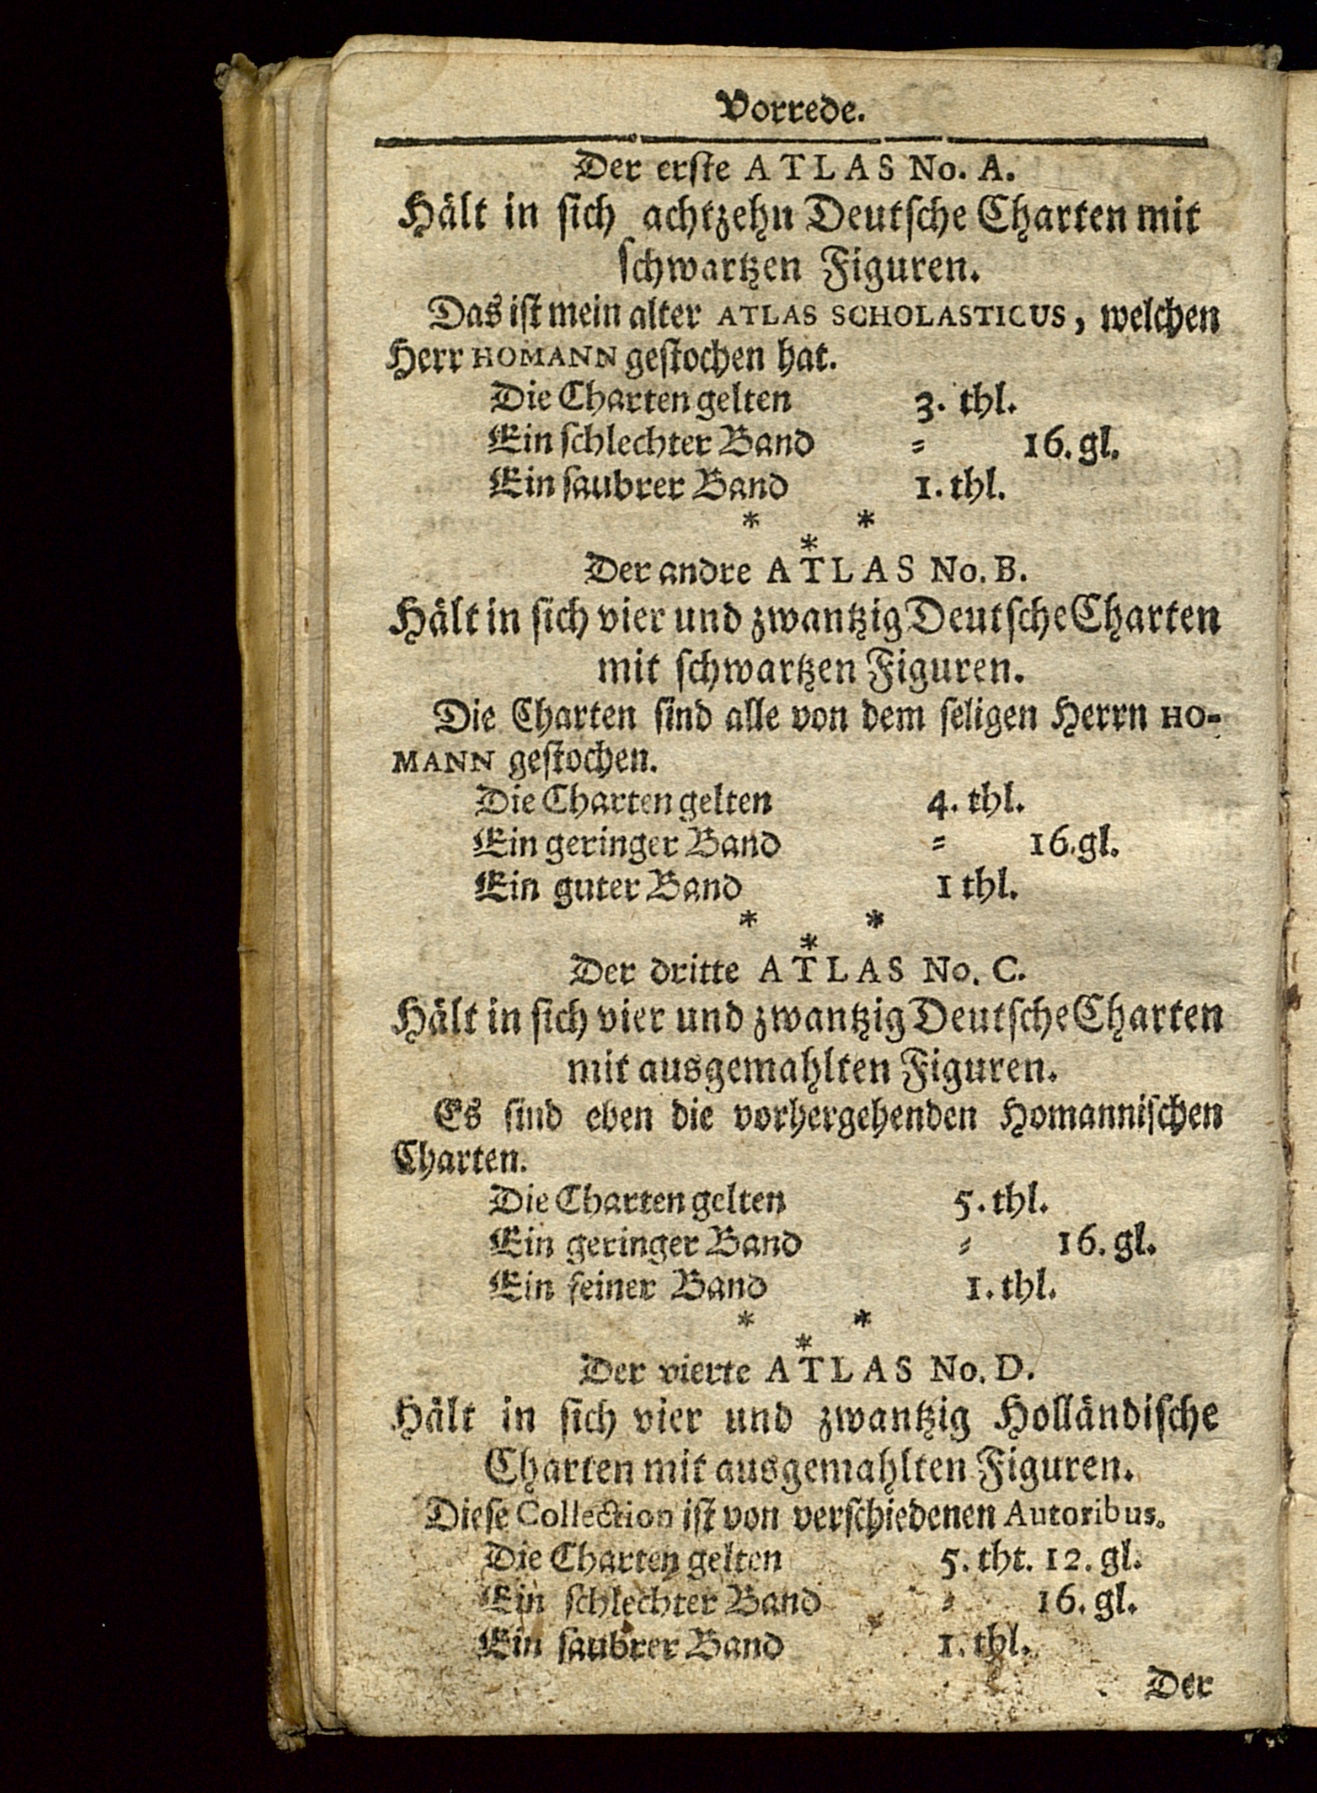 Vorrede.
Der erſte ATLAS No. A.
Hält in ſich achtzehn Deutſche Charten mit
ſchwartzen Figuren.
Das iſt mein alter ATLAS SCHOLASTICUS, welchen
Herr HOMANN geſtochen hat.
Die Charten gelten 3. thl.
Ein ſchlechter Band = 16. gl.
Ein ſaubrer Band 1. thl.
* *
*
Der andre ATLAS No. B.
Hält in ſich vier und zwantzig Deutſche Charten
mit ſchwartzen Figuren.
Die Charten ſind alle von dem ſeligen Herrn HO-
MANN geſtochen.
Die Charten gelten 4. thl.
Ein geringer Band = 16. gl.
Ein guter Band 1 thl.
* *
*
Der dritte ATLAS No. C.
Hält in ſich vier und zwantzig Deutſche Charten
mit ausgemahlten Figuren.
Es ſind eben die vorhergehenden Homanniſchen
Charten.
Die Charten gelten 5. thl.
Ein geringer Band = 16. gl.
Ein feiner Band 1. thl.
* *
*
Der vierte ATLAS No. D.
Hält in ſich vier und zwantzig Holländiſche
Charten mit ausgemahlten Figuren.
Dieſe Collection iſt von verſchiedenen Autoribus.
Die Charten gelten 5. tht. 12. gl.
Ein ſchlechter Band = 16. gl.
Ein ſaubrer Band 1. thl.
Der